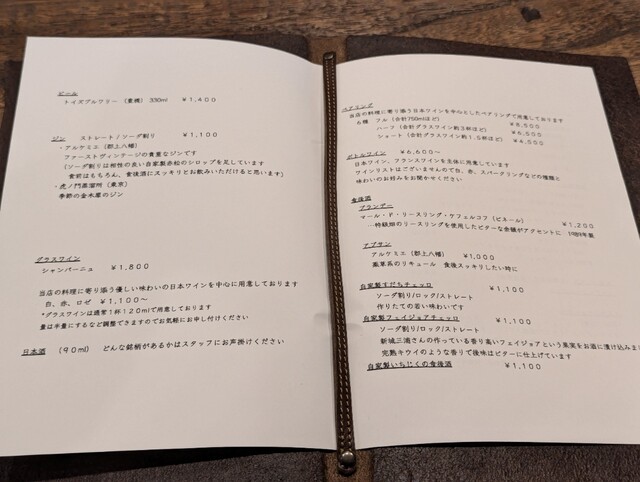 ビール
トイズブルワリー（豊橋）330ml　￥1,400
ジン　ストレート/ソーダ割り　￥1,100
・アルケミエ（郡上八幡）
ファーストヴィンテージの貴重なジンです
（ソーダ割りは相性の良い自家製赤松のシロップを足しています
食前はもちろん、食後酒にスッキリとお飲みいただけると思います）
・虎ノ門蒸留所（東京）
季節の金木犀のジン
グラスワイン
シャンパーニュ　￥1,800
当店の料理に寄り添う優しい味わいの日本ワインを中心に用意しております
白、赤、ロゼ　￥1,100～
*グラスワインは通常1杯120mlで用意しております
量は半量にするなど調整できますのでお気軽にお申し付けください
日本酒　（90ml）　どんな銘柄があるかはスタッフにお声掛けください
ペアリング
当店の料理に寄り添う日本ワインを中心としたペアリングで用意しております
6種　フル（合計750mlほど）　￥8,500
ハーフ（合計グラスワイン約3杯ほど）　￥6,500
ショート（合計グラスワイン約1.5杯ほど）　￥4,550
ボトルワイン　￥6,600～
日本ワイン、フランスワインを主体に用意しています
ワインリストはございませんので白、赤、スパークリングなどの種類と
味わいのお好みをお聞かせください
食後酒
ブランデー
マール・ド・リースリング・ケフェルコフ（ビネール）　￥1,200
…特級畑のリースリングを使用したビターな余韻がアクセントに　1989年蒸
アブサン
アルケミエ（郡上八幡）　￥1,000
薬草系のリキュール　食後スッキリしたい時に
自家製すだちチェッロ　￥1,100
ソーダ割り/ロック/ストレート
作りたての若い味わいです
自家製フェイジョアチェッロ　￥1,100
ソーダ割り/ロック/ストレート
新城三浦さんの作っている香り高いフェイジョアという果実をお酒に漬け込みま
完熟キウイのような香りで後味はビターに仕上げています
自家製いちじくの食後酒　￥1,100